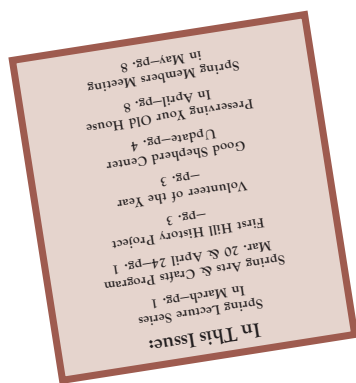 In This Issue:
Spring Lecture Series
In March–pg. 1
Spring Arts & Crafts Program
Mar. 20 & April 24–pg. 1
First Hill History Project
–pg. 3
Volunteer of the Year
–pg. 3
Good Shepherd Center
Update–pg. 4
Preserving Your Old House
In April–pg. 8
Spring Members Meeting
in May–pg. 8